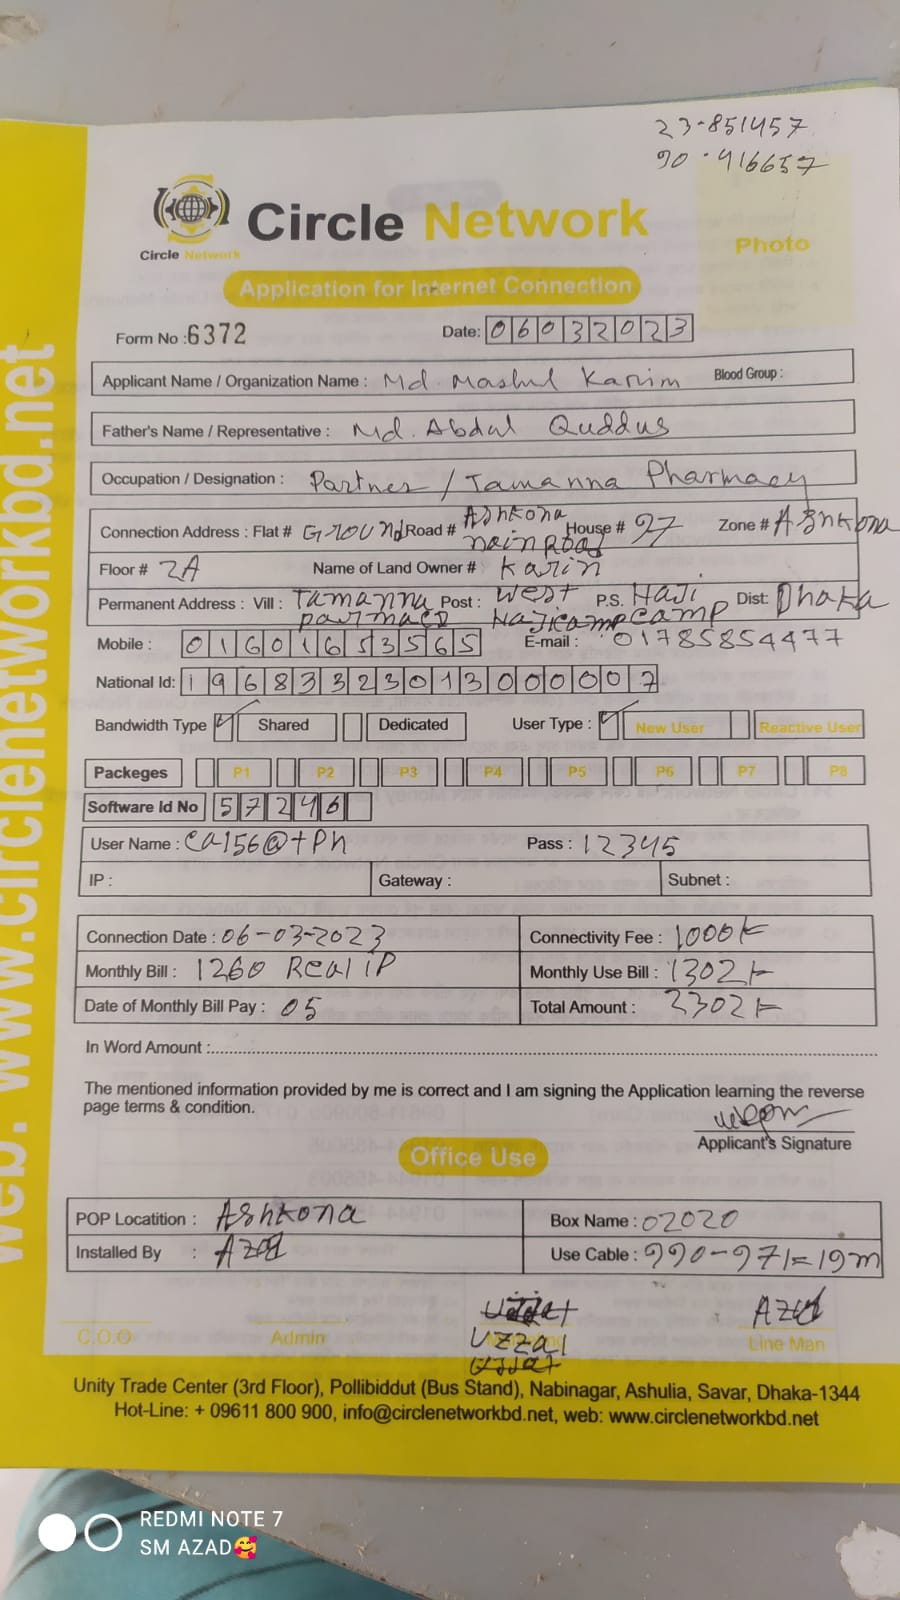 23-851457
90-416657
Circle Network
Circle Network
Photo
Application for Internet Connection
Form No :6372 Date: 06032023
Applicant Name / Organization Name : Md. Mashul Karim Blood Group :
Father's Name / Representative : Md. Abdul Quddus
Occupation / Designation : Partner / Tamanna Pharmacy
Connection Address : Flat # Ground Road # Ashkona main Road House # 97 Zone # Ashkona
Floor # 2A Name of Land Owner # Karim
Permanent Address : Vill : Tamanna Post : West Hajicamp P.S. Haji camp Dist: Dhaka
Mobile : 01601653565 E-mail : 01785854477
National Id: 19683323013000007
Bandwidth Type Shared Dedicated User Type : New User Reactive User
Packeges P1 P2 P3 P4 P5 P6 P7 P8
Software Id No 57246
User Name : ca156@tph Pass : 12345
IP : Gateway : Subnet :
Connection Date : 06-03-2023 Connectivity Fee : 1000/-
Monthly Bill : 1260 Real iP Monthly Use Bill : 1302/-
Date of Monthly Bill Pay : 05 Total Amount : 2302/-
In Word Amount :
The mentioned information provided by me is correct and I am signing the Application learning the reverse
page terms & condition.
Applicant's Signature
Office Use
POP Locatition : Ashkona Box Name : 02020
Installed By : Azad Use Cable : 990-971=19m
C.O.O Admin Uzzal Azad Line Man
Unity Trade Center (3rd Floor), Pollibiddut (Bus Stand), Nabinagar, Ashulia, Savar, Dhaka-1344
Hot-Line: + 09611 800 900, info@circlenetworkbd.net, web: www.circlenetworkbd.net
web: www.circlenetworkbd.net
REDMI NOTE 7
SM AZAD🥰